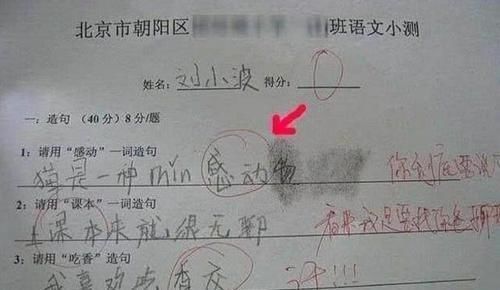 北京市朝阳区 班语文小测
姓名: 刘小波 得分: 0
一: 造句 (40分) 8分/题
1: 请用“感动”一词造句
猫是一种 min 感动物 你到底要
2: 请用“课本”一词造句
上课本来就很无聊 看来我是要找你爸聊聊
3: 请用“吃香”一词造句
我喜欢吃香 !!!